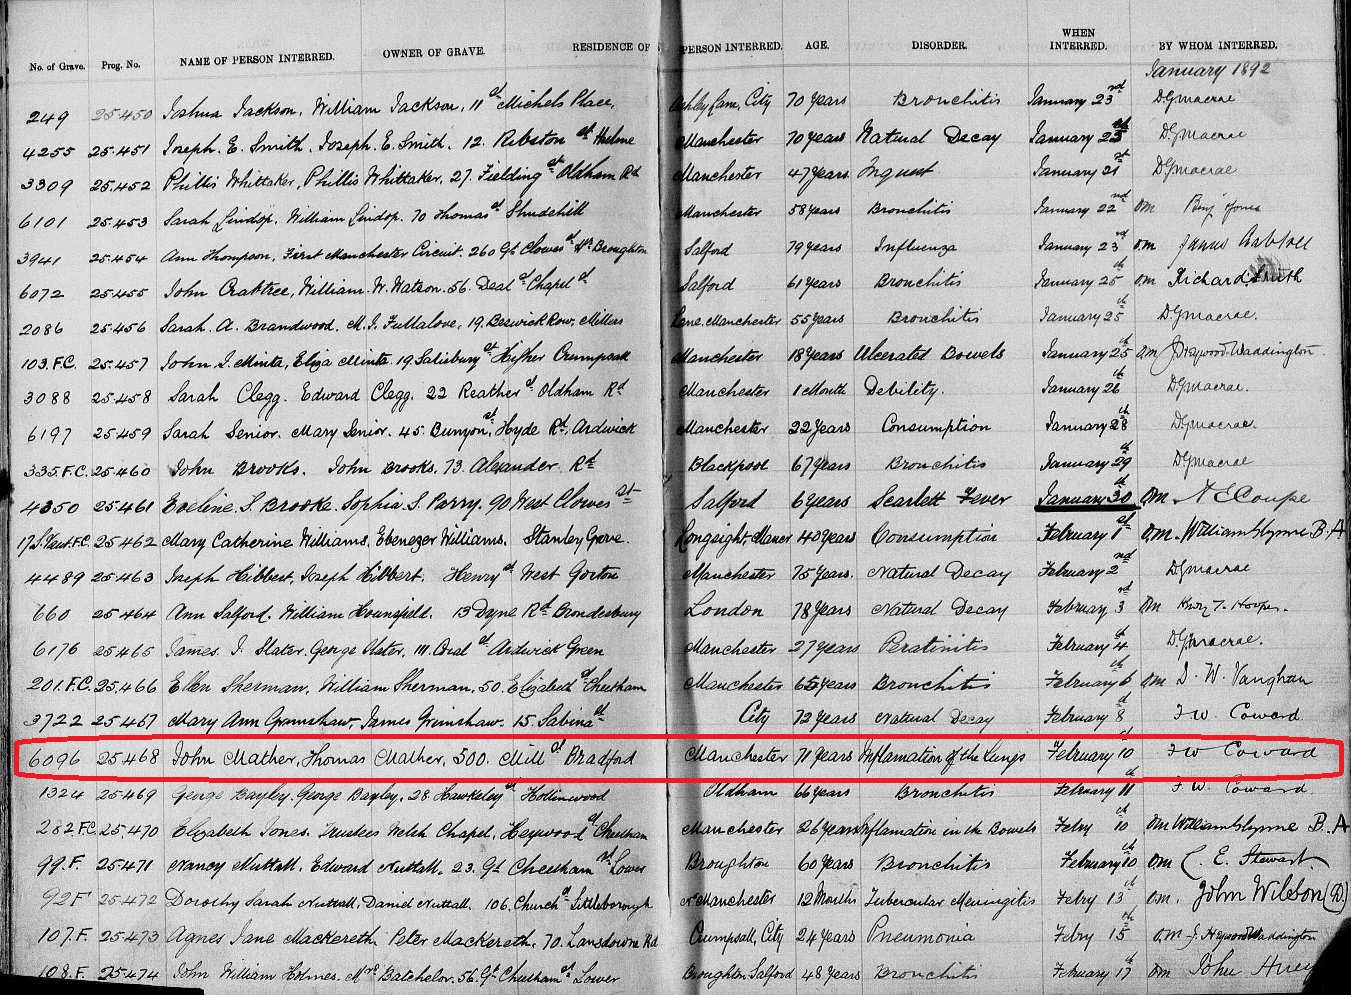 No. of Grave. Prog. No. NAME OF PERSON INTERRED. OWNER OF GRAVE. RESIDENCE OF PERSON INTERRED. AGE. DISORDER. WHEN INTERRED. BY WHOM INTERRED.
January 1892
249 25450 Joshua Jackson, William Jackson, 11 Michels Place, Ashley Lane, City 70 Years Bronchitis January 23rd D.G. Macrae
4255 25.451 Joseph. E. Smith. Joseph. E. Smith. 12. Ribston St Hulme Manchester 70 Years Natural Decay January 23 D.G. Macrae
3309 25.452 Phillis Whittaker, Phillis Whittaker, 27. Fielding St Oldham Rd Manchester 47 Years Inquest January 21st D.G. Macrae
6101 25.453 Sarah Lindop. William Lindop. 70 Thomas St Shudehill Manchester 58 Years Bronchitis January 22nd om Benj Jones
3941 25.454 Ann Thompson, First Manchester Circuit. 260 Gt Clowes St Hr Broughton Salford 79 Years Influenza January 23rd om James
6072 25.455 John Crabtree, William. W. Watson. 56. Deal St Chapel St Salford 61 Years Bronchitis January 25th om Richard Smith
2086 25.456 Sarah. A. Brandwood. M. J. Fullalove, 19. Beswick Row, Millers Lane. Manchester 55 Years Bronchitis January 25th D.G. Macrae.
103. F.C. 25.457 John S. Minta, Eliza Minta 19 Salisbury St Higher Crumpsall Manchester 18 Years Ulcerated Bowels January 25th om J Heywood Waddington
3088 25.458 Sarah Clegg. Edward Clegg. 22 Reather St Oldham Rd Manchester 1 Month Debility. January 26th D.G. Macrae.
6197 25.459 Sarah Senior. Mary Senior. 45. Bunyon St, Hyde Rd, Ardwick Manchester 22 Years Consumption January 28th D.G. Macrae.
335. F.C. 25.460 John Brooks. John Brooks. 73. Alexander. Rd Blackpool 67 Years Bronchitis January 29th D.G. Macrae
4350 25.461 Eveline. S. Brooke. Sophia. S. Parry. 90 West Clowes St Salford 6 Years Scarlett Fever January 30th om N E Coupe
F.C. 25.462 Mary Catherine Williams, Ebenezer Williams. Stanley Grove. Longsight, Mancr 40 Years Consumption February 1st om. William Glynne B.A
4489 25.463 Joseph Hibbert, Joseph Hibbert. Henry St West Gorton Manchester 75 Years. Natural Decay February 2nd D.G. Macrae
660 25.464 Ann Salford. William Hounsfield. 13 Dyne Rd Brondesbury London 78 Years Natural Decay February 3rd om T. Hooper.
6176 25.465 James. J. Slater. George Slater, 111. Oval St Ardwick Green Manchester 27 Years Peratinitis February 4th D.G. Macrae.
201. F.C. 25.466 Ellen Sherman, William Sherman. 50. Elizabeth St Cheetham Manchester 65 Years Bronchitis February 6th om D. W. Vaughan
3722 25.467 Mary Ann Grimshaw, James Grimshaw. 15. Sabina St City 72 Years Natural Decay February 8th F W. Coward.
6096 25.468 John Mather, Thomas Mather, 500. Mill St Bradford Manchester 71 Years Inflamation of the Lungs February 10th F W Coward
1324 25.469 George Bayley. George Bayley. 28. Hawkeley St Hollinwood Oldham 66 Years Bronchitis February 11th F W. Coward
282 F.C. 25.470 Elizabeth Jones. Trustees Welsh Chapel, Heywood St Cheetham Manchester 26 Years Inflamation in the Bowels Febry 10th om William Glynne B.A
99. F. 25.471 Nancy Nuttall. Edward Nuttall. 23. Gt Cheetham St Lower Broughton 60 Years Bronchitis February 10th om. C. E. Stewart
92 F 25.472 Dorothy Sarah Nuttall, Daniel Nuttall. 106. Church St Littleborough Nr Manchester 12 Months Tubercular Meningitis Febry 13th om. John Wilson (D)
107. F. 25.473 Agnes Jane Mackereth Peter Mackereth. 70. Lansdowne Rd Crumpsall, City 24 Years Pneumonia Febry 15th o.m. J. Heywood Waddington
108. F. 25.474 John William Holmes. Mrs Batchelor. 56. Gt Cheetham St Lower Broughton Salford 48 Years Bronchitis February 17th om John